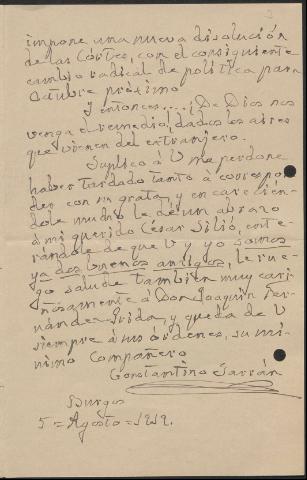 impone una nueva disolución
de las Córtes, con el consiguiente
cambio radical de política para
Octubre próximo
Y entonces....; De Dios nos
venga el remedio, dados los aires
que vienen del extranjero.
Suplico á V. me perdone
haber tardado tanto á correspon
der con su grata, y encarecién-
dole mucho le dé un abrazo
á mi querido César Silió, ente-
rándole de que V y yo somos
ya dos buenos amigos, le rue-
go salude también muy cari
ñosamente á Don Joaquín Fer-
nández Prida, y queda de V
siempre á sus órdenes, su mi-
nimo compañero
Constantino
Burgos
5 = Agosto = 1919.